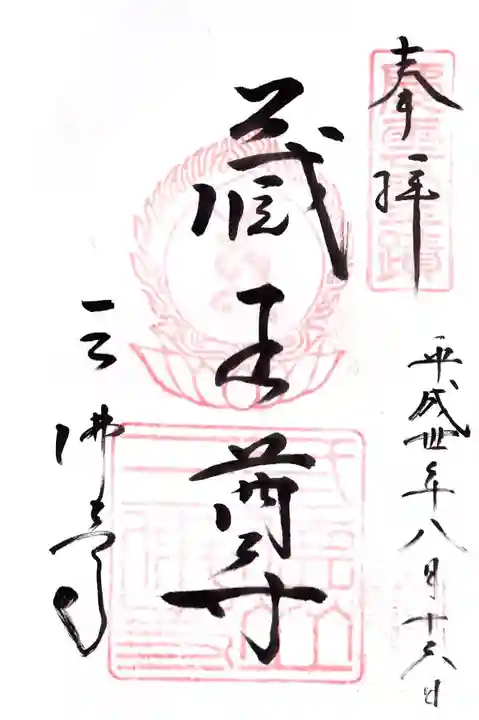 奉拝
平成丗年八月十六日
蔵王尊
三佛寺